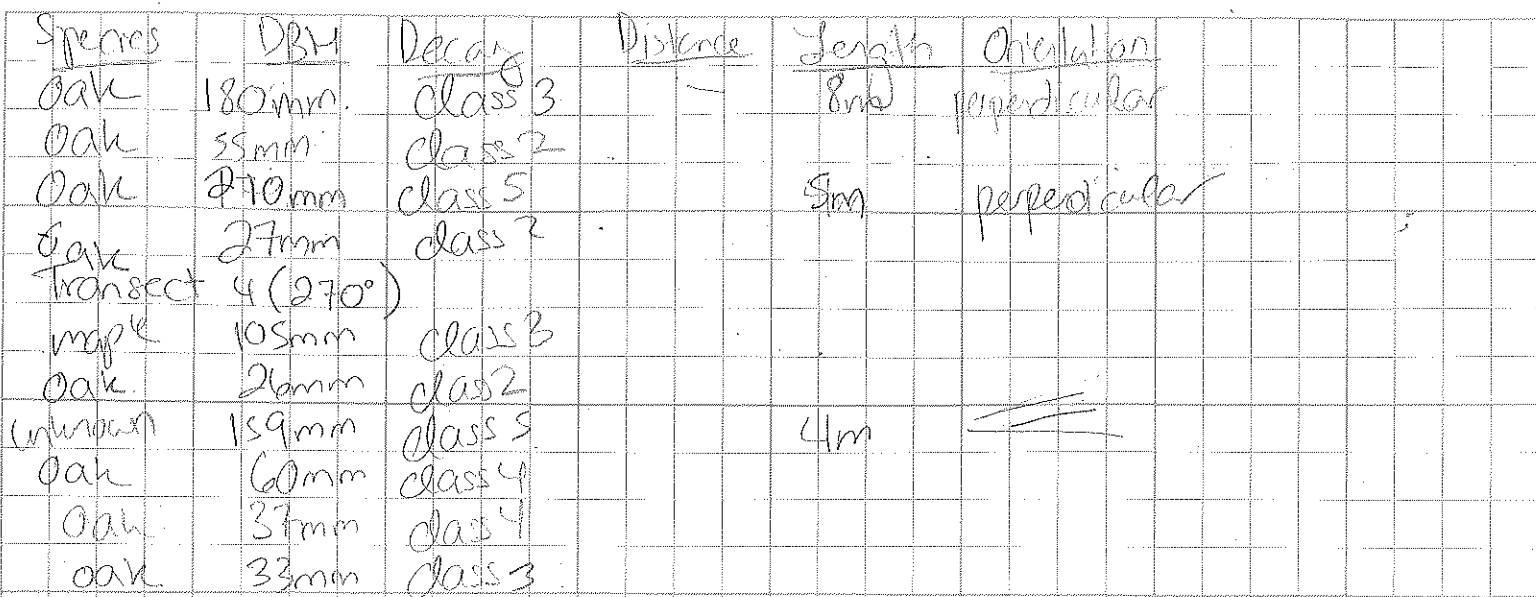 Species DBH Decay Distance Length Orientation
Oak 180mm. class 3 8m perpendicular
Oak 55mm class 2
Oak 270mm class 5 5m perpendicular
Oak 27mm class 2
Transect 4 (270°)
maple 105mm class 3
Oak 26mm clas 2
unknown 159mm class 5 4m
Oak 60mm class 4
Oak 37mm class 4
oak 33mm class 3